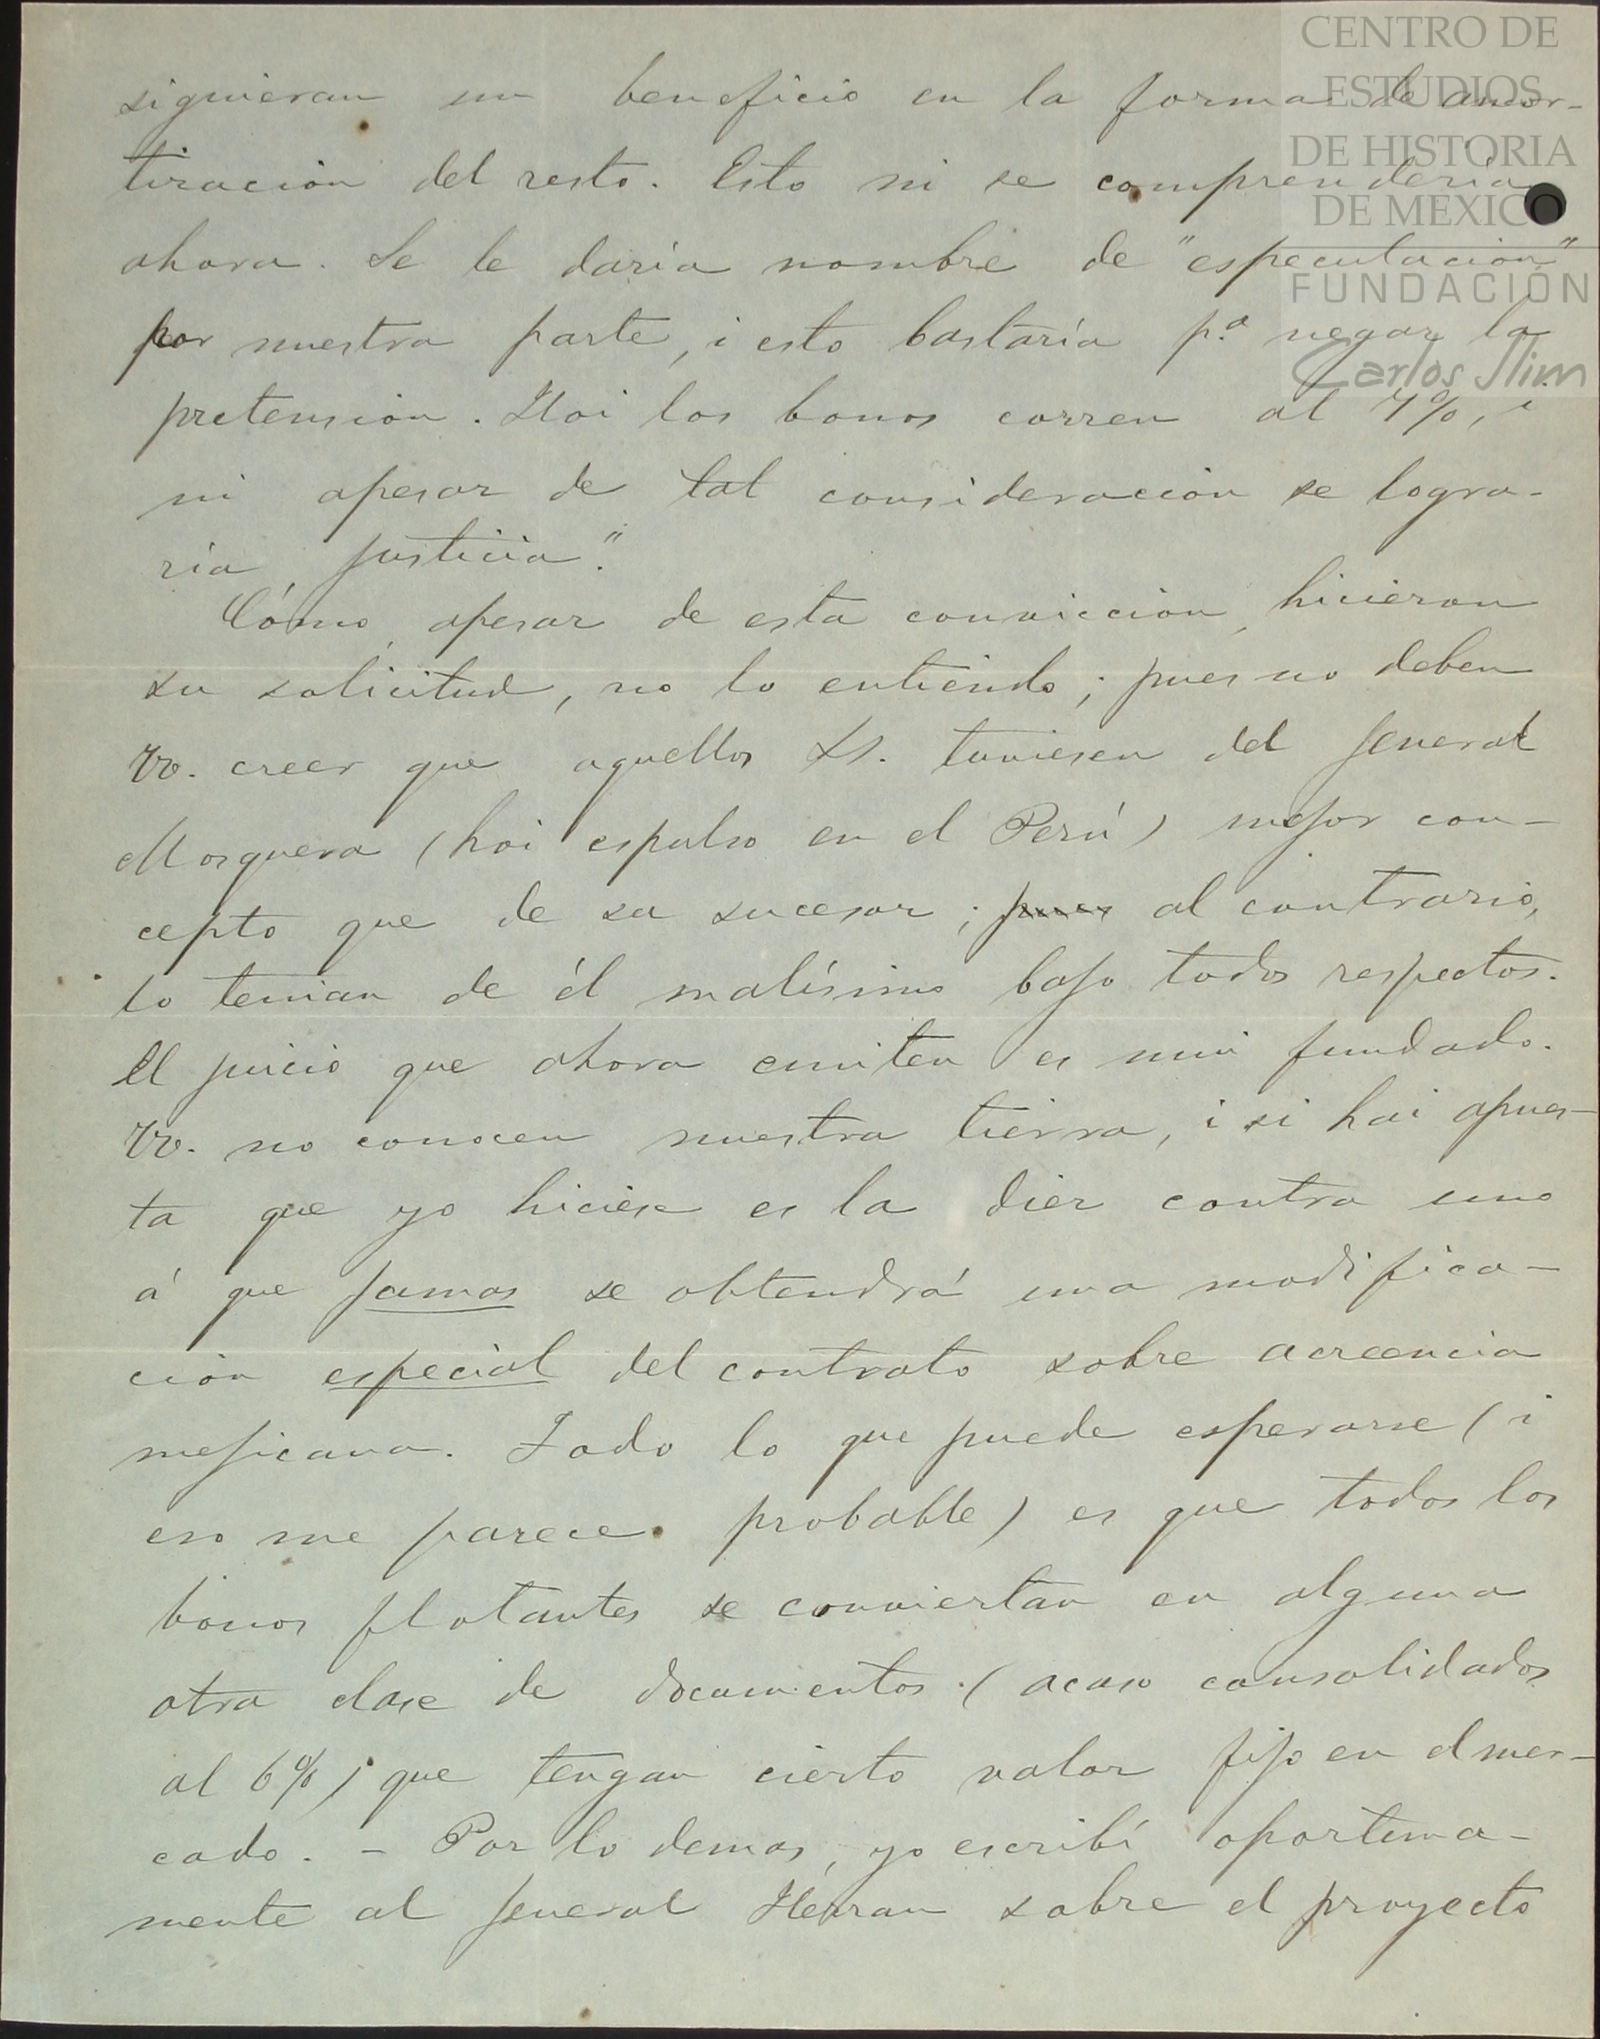 CENTRO DE
ESTUDIOS
DE HISTORIA
DE MÉXICO
FUNDACIÓN
Carlos Slim
siguieran un beneficio en la forma de amor-
tización del resto. Esto ni se comprendería
ahora. Se le daría nombre de "especulación"
por nuestra parte, i esto bastaría pª negar la
pretensión. Hoi los bonos corren al 7%, i
ni apesar de tal consideración se logra-
ría justicia."
Cómo, apesar de esta convicción, hicieron
su solicitud, no lo entiendo; pues no deben
VV. creer que aquellos SS. tuviesen del Jeneral
Mosquera (hoi espulso en el Perú) mejor con-
cepto que de su sucesor; pues al contrario,
lo tenian de él malísimo bajo todos respectos.
El juicio que ahora emiten es mui fundado.
VV. no conocen nuestra tierra, i si hai apues-
ta que yo hiciese es la diez contra uno
á que jamas se obtendrá una modifica-
ción especial del contrato sobre acreencia
mejicana. Todo lo que puede esperarse (i
eso me parece probable) es que todos los
bonos flotantes se conviertan en alguna
otra clase de documentos (acaso consolidados
al 6%) que tengan cierto valor fijo en el mer-
cado. - Por lo demas, yo escribí oportuna-
mente al Jeneral Herran sobre el proyecto